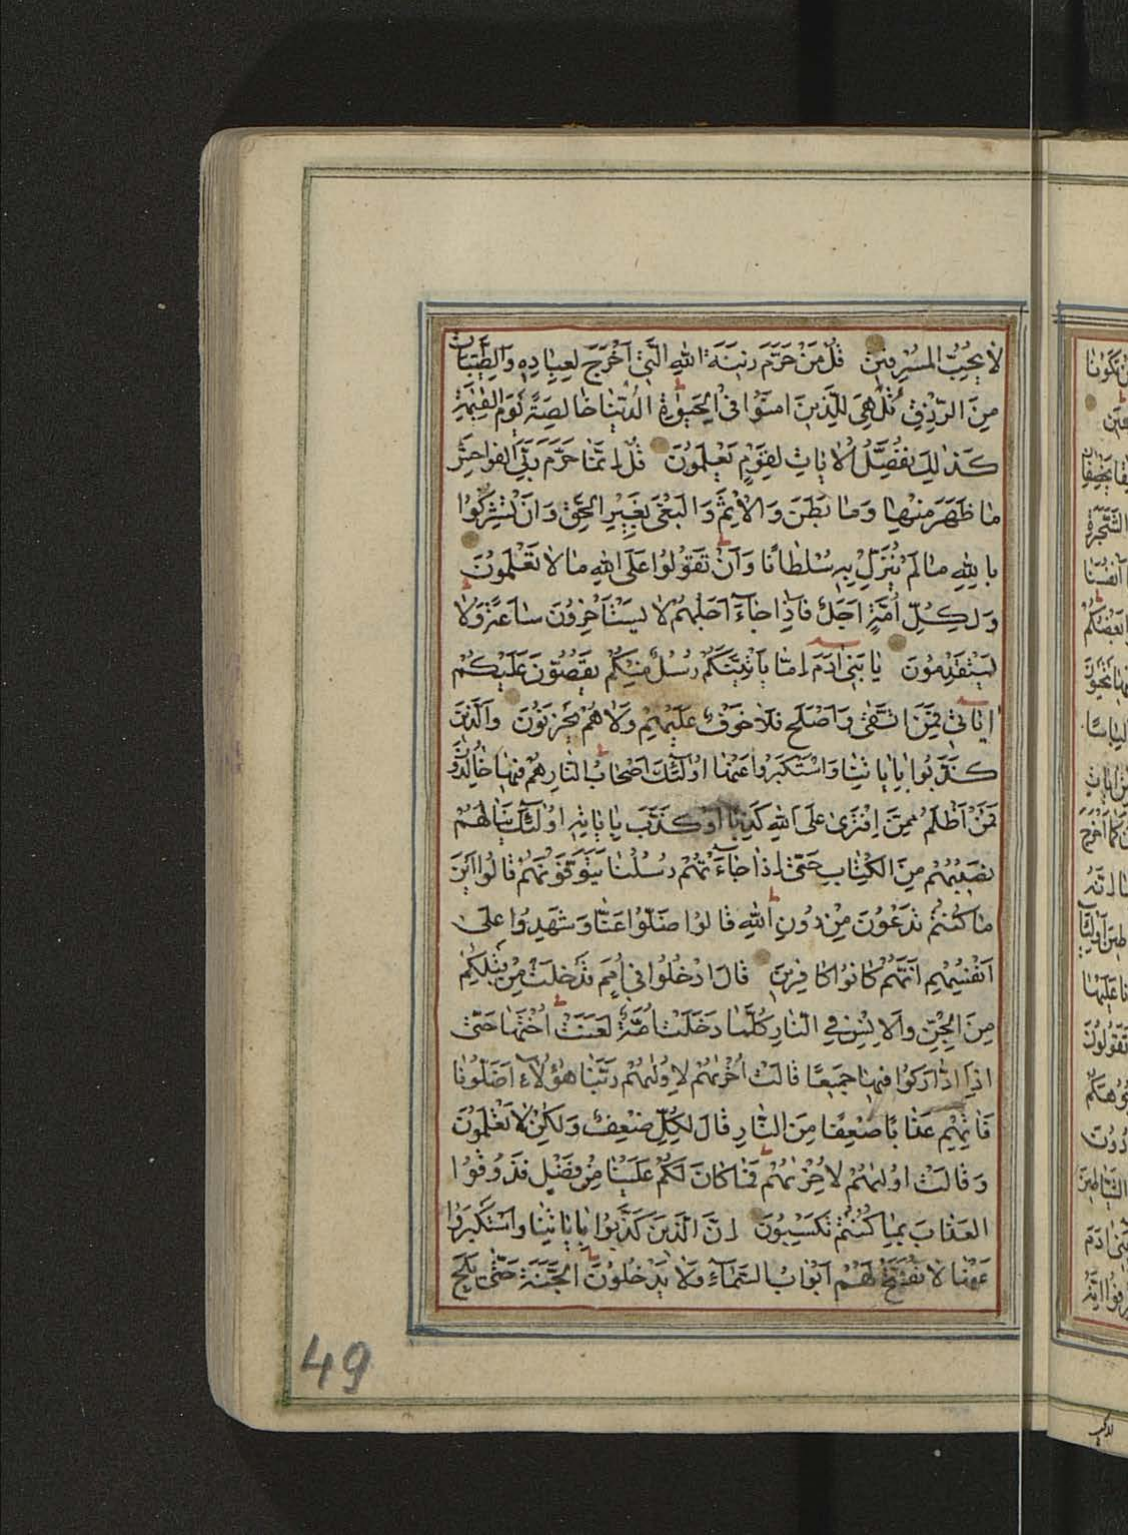 لَا يُحِبُّ الْمُسْرِفِينَ قُلْ مَنْ حَرَّمَ زِينَةَ اللهِ الَّتِي أَخْرَجَ لِعِبَادِهِ وَالطَّيِّبَاتِ
مِنَ الرِّزْقِ قُلْ هِيَ لِلَّذِينَ امَنُوا فِي الْحَيٰوةِ الدُّنْيَا خَالِصَةً يَوْمَ الْقِيٰمَةِ
كَذٰلِكَ نُفَصِّلُ الْاٰيَاتِ لِقَوْمٍ يَعْلَمُونَ قُلْ اِنَّمَا حَرَّمَ رَبِّيَ الْفَوَاحِشَ
مَا ظَهَرَ مِنْهَا وَمَا بَطَنَ وَالْاِثْمَ وَالْبَغْيَ بِغَيْرِ الْحَقِّ وَاَنْ تُشْرِكُوا
بِاللهِ مَا لَمْ يُنَزِّلْ بِهِ سُلْطَانًا وَاَنْ تَقُولُوا عَلَى اللهِ مَا لَا تَعْلَمُونَ
وَلِكُلِّ اُمَّةٍ اَجَلٌ فَاِذَا جَاءَ اَجَلُهُمْ لَا يَسْتَأْخِرُونَ سَاعَةً وَلَا
يَسْتَقْدِمُونَ يَا بَنِي اٰدَمَ اِمَّا يَأْتِيَنَّكُمْ رُسُلٌ مِنْكُمْ يَقُصُّونَ عَلَيْكُمْ
اٰيَاتِي فَمَنِ اتَّقٰى وَاَصْلَحَ فَلَا خَوْفٌ عَلَيْهِمْ وَلَا هُمْ يَحْزَنُونَ وَالَّذِينَ
كَذَّبُوا بِاٰيَاتِنَا وَاسْتَكْبَرُوا عَنْهَا اُولٰئِكَ اَصْحَابُ النَّارِ هُمْ فِيهَا خَالِدُونَ
فَمَنْ اَظْلَمُ مِمَّنِ افْتَرٰى عَلَى اللهِ كَذِبًا اَوْ كَذَّبَ بِاٰيَاتِهِ اُولٰئِكَ يَنَالُهُمْ
نَصِيبُهُمْ مِنَ الْكِتَابِ حَتّٰى اِذَا جَاءَتْهُمْ رُسُلُنَا يَتَوَفَّوْنَهُمْ قَالُوا اَيْنَ
مَا كُنْتُمْ تَدْعُونَ مِنْ دُونِ اللهِ قَالُوا ضَلُّوا عَنَّا وَشَهِدُوا عَلٰى
اَنْفُسِهِمْ اَنَّهُمْ كَانُوا كَافِرِينَ قَالَ ادْخُلُوا فِي اُمَمٍ قَدْ خَلَتْ مِنْ قَبْلِكُمْ
مِنَ الْجِنِّ وَالْاِنْسِ فِي النَّارِ كُلَّمَا دَخَلَتْ اُمَّةٌ لَعَنَتْ اُخْتَهَا حَتّٰى
اِذَا ادَّارَكُوا فِيهَا جَمِيعًا قَالَتْ اُخْرٰيهُمْ لِاُولٰيهُمْ رَبَّنَا هٰؤُلَاءِ اَضَلُّونَا
فَاٰتِهِمْ عَذَابًا ضِعْفًا مِنَ النَّارِ قَالَ لِكُلٍّ ضِعْفٌ وَلٰكِنْ لَا تَعْلَمُونَ
وَقَالَتْ اُولٰيهُمْ لِاُخْرٰيهُمْ فَمَا كَانَ لَكُمْ عَلَيْنَا مِنْ فَضْلٍ فَذُوقُوا
الْعَذَابَ بِمَا كُنْتُمْ تَكْسِبُونَ اِنَّ الَّذِينَ كَذَّبُوا بِاٰيَاتِنَا وَاسْتَكْبَرُوا
عَنْهَا لَا تُفَتَّحُ لَهُمْ اَبْوَابُ السَّمَاءِ وَلَا يَدْخُلُونَ الْجَنَّةَ حَتّٰى يَلِجَ
49